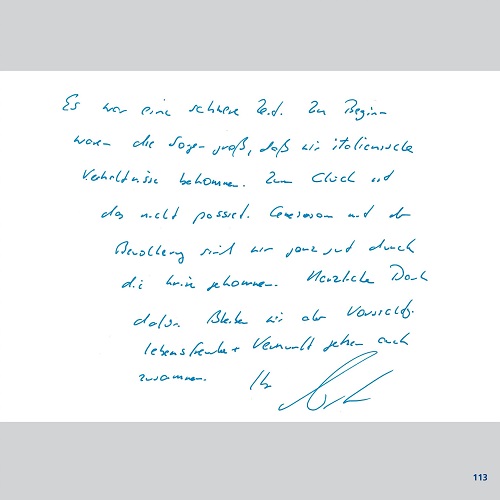 Es war eine schwere Zeit. Zu Beginn
waren die Sorgen groß, daß wir italienische
Verhältnisse bekommen. Zum Glück ist
das nicht passiert. Gemeinsam mit der
Bevölkerung sind wir ganz gut durch
die Krise gekommen. Herzlichen Dank
dafür. Bleiben wir aber vorsichtig.
Lebensfreude + Vernunft gehen auch
zusammen. Ihr
113